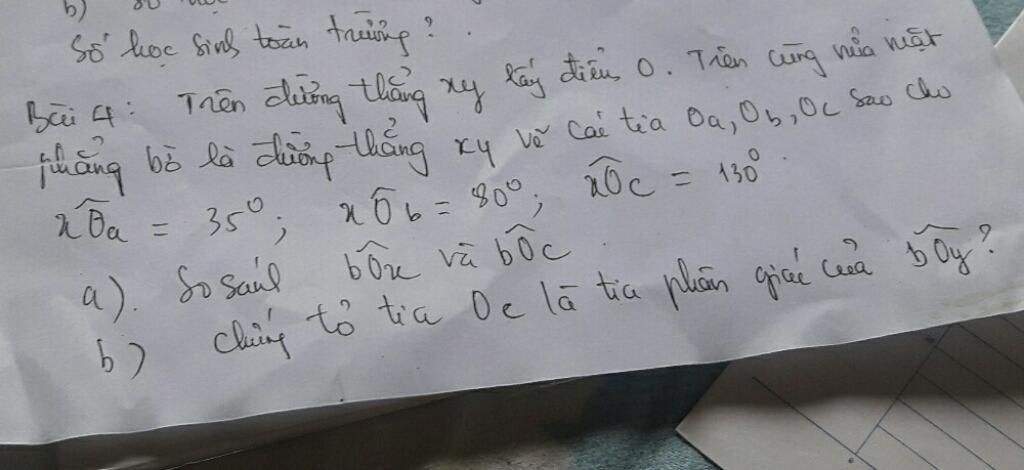 b)
Số học sinh toàn trường?
Bài 4: Trên đường thẳng xy lấy điểm O. Trên cùng nửa mặt
phẳng bờ là đường thẳng xy vẽ các tia Oa, Ob, Oc sao cho
xÔa = 35°; xÔb = 80°; xÔc = 130°.
a). So sánh bÔx và bÔc
b) chứng tỏ tia Oc là tia phân giác của bÔy?